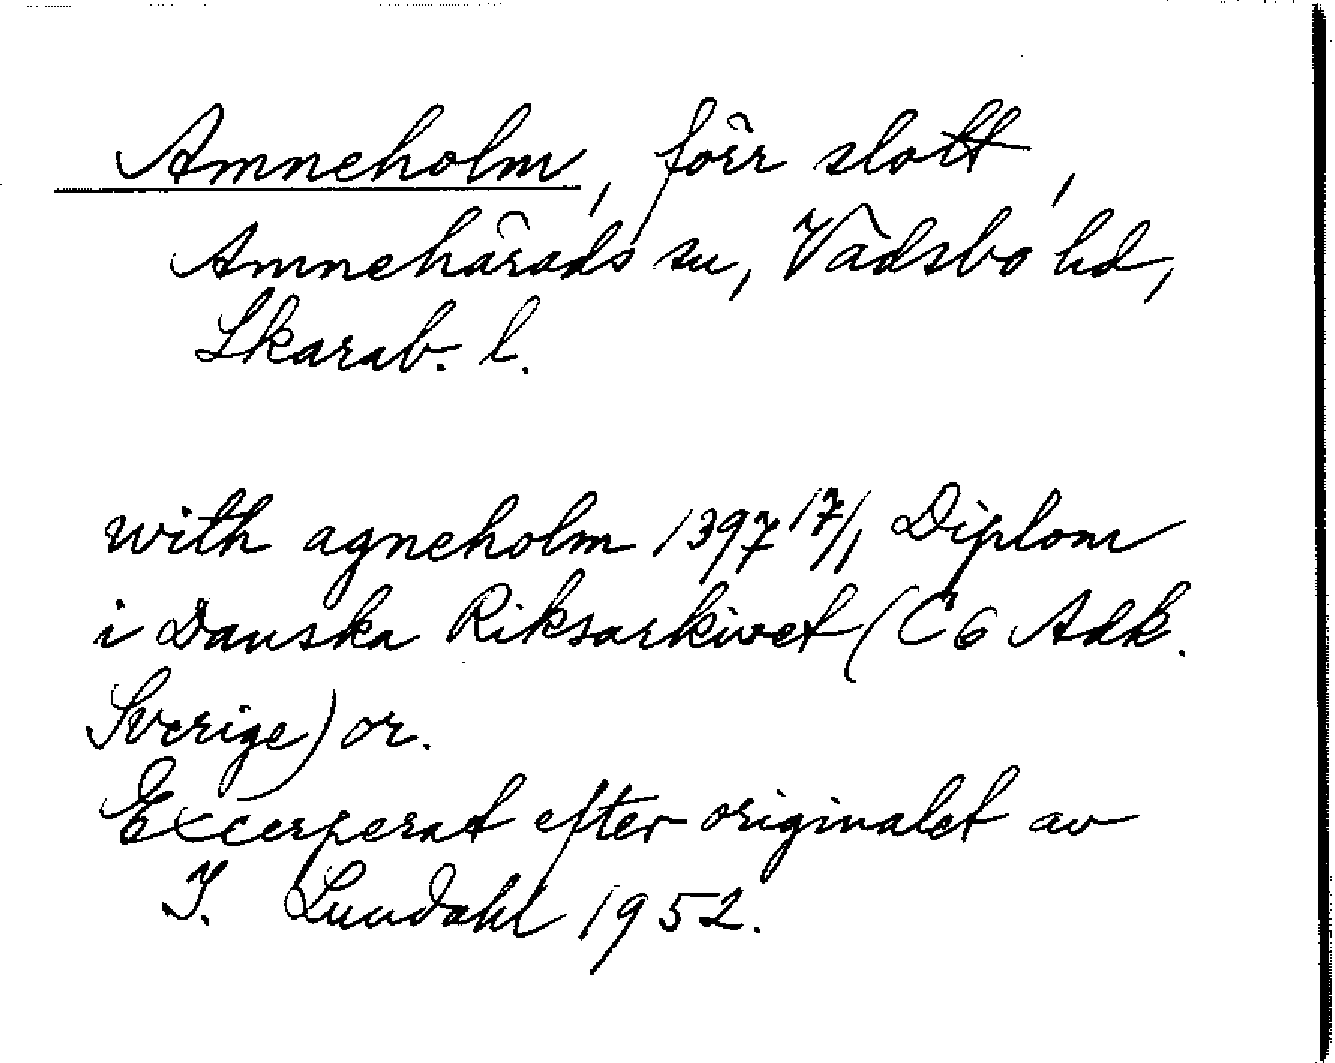 Amneholm, förr slott,
Amnehärads sn, Vadsbo hd,
Skarab. l.
with agneholm 1397 17/1 Diplom
i Danska Riksarkivet (C6 Adk.
Sverige) or.
Excerperat efter originalet av
I. Lundahl 1952.